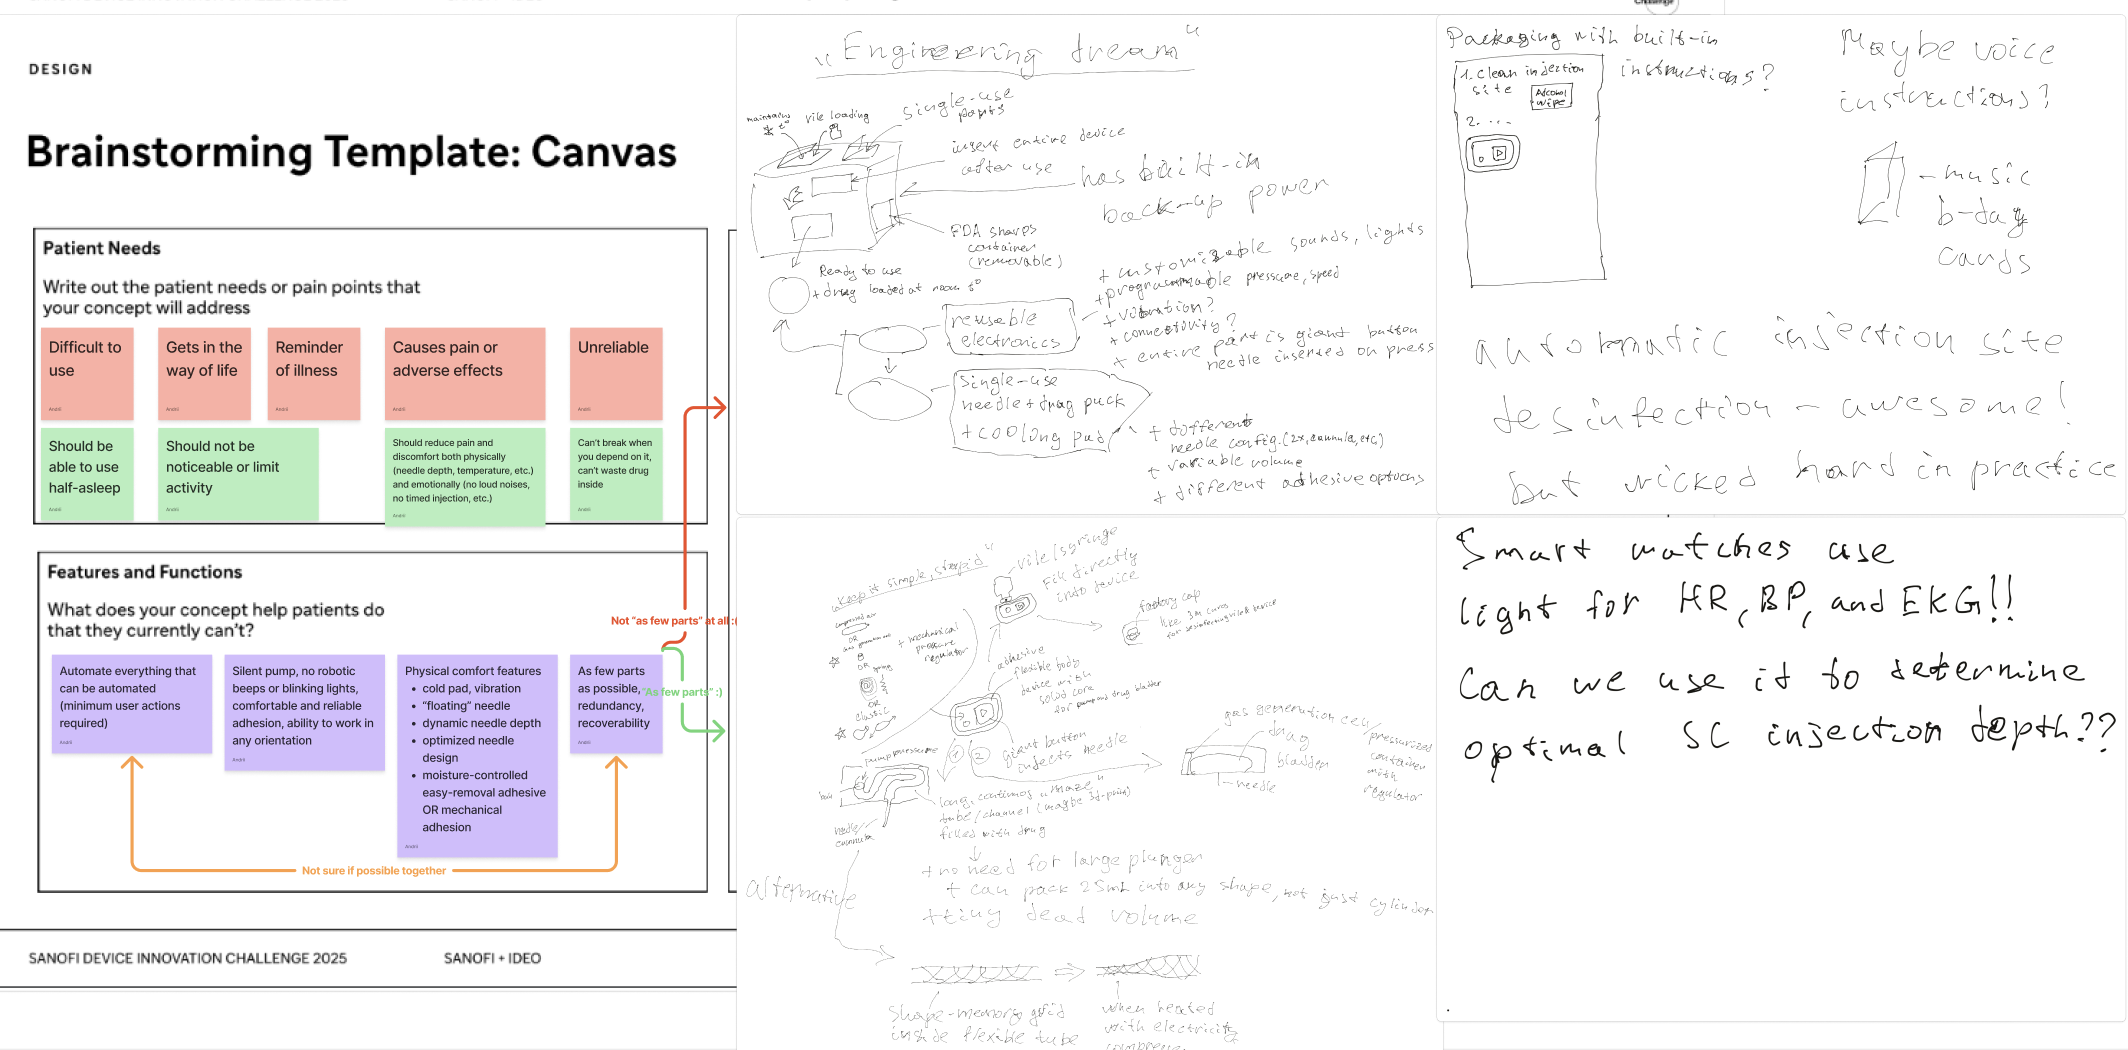 DESIGN
Brainstorming Template: Canvas
Patient Needs
Write out the patient needs or pain points that
your concept will address
Difficult to
use
Andrii
Gets in the
way of life
Andrii
Reminder
of illness
Andrii
Causes pain or
adverse effects
Andrii
Unreliable
Andrii
Should be
able to use
half-asleep
Andrii
Should not be
noticeable or limit
activity
Andrii
Should reduce pain and
discomfort both physically
(needle depth, temperature, etc.)
and emotionally (no loud noises,
no timed injection, etc.)
Andrii
Can't break when
you depend on it,
can't waste drug
inside
Andrii
Features and Functions
What does your concept help patients do
that they currently can't?
Not "as few parts" at all :(
Automate everything that
can be automated
(minimum user actions
required)
Andrii
Silent pump, no robotic
beeps or blinking lights,
comfortable and reliable
adhesion, ability to work in
any orientation
Andrii
Physical comfort features
• cold pad, vibration
• "floating" needle
• dynamic needle depth
• optimized needle
design
• moisture-controlled
easy-removal adhesive
OR mechanical
adhesion
Andrii
As few parts
as possible,
redundancy,
recoverability
Andrii
"As few parts" :)
Not sure if possible together
SANOFI DEVICE INNOVATION CHALLENGE 2025
SANOFI + IDEO
"Engineering dream"
maintains
t°
vile loading
single-use
parts
insert entire device
after use
has built-in
back-up power
FDA sharps
container
(removable)
Ready to use
+ drug loaded at room t°
reusable
electronics
+ customizable sounds, lights
+ programmable pressure, speed
+ vibration?
+ connectivity?
+ entire part is giant button
needle inserted on press
single-use
needle + drug puck
+ cooling pad
+ different
needle config. (2x, cannula, etc)
+ variable volume
+ different adhesive options
"Keep it simple, stupid"
vile/syringe
Fill directly
into device
factory cap
like 3m curos
for desinfecting vile & device
compressed air
OR
gas generation cell
OR
spring
OR
elastic
+ mechanical
pressure
regulator
adhesive
flexible body
device with
solid core
for pump and drug bladder
1
2
giant button
injects needle
gas generation cell/
pressurized
container
with
regulator
drug
bladder
needle
pump pressure
needle/
cannula
long, continuous "maze"
tube/channel (maybe 3d-print)
filled with drug
+ no need for large plunger
+ can pack 25mL into any shape, not just cylinder
+ tiny dead volume
alternative
shape-memory grid
inside flexible tube
when heated
with electricity
compress
Packaging with built-in
instructions?
1. Clean injection
site
Alcohol
wipe
2. ...
Maybe voice
instructions?
- music
b-day
cards
automatic injection site
desinfection - awesome!
but wicked hard in practice
Smart watches use
light for HR, BP, and EKG!!
Can we use it to determine
optimal SC injection depth??